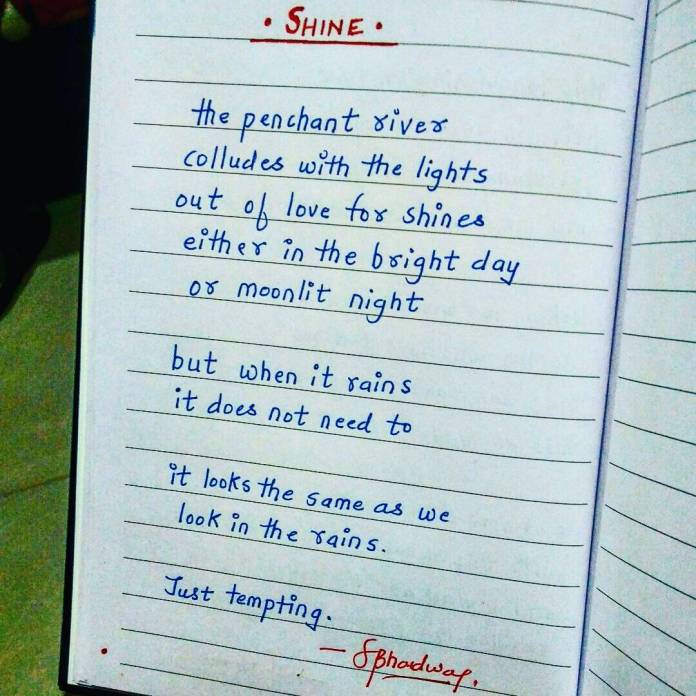 • SHINE •
the penchant river
colludes with the lights
out of love for shines
either in the bright day
or moonlit night
but when it rains
it does not need to
it looks the same as we
look in the rains.
Just tempting.